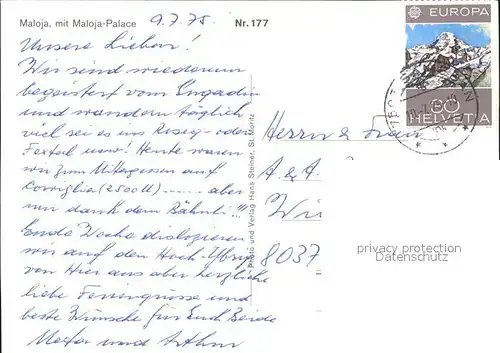 Maloja, mit Maloja-Palace 9.7.75. Nr. 177
Unsere Lieben!
Wir sind wiederum
begeistert vom Engadin
und wandern täglich
viel sei es ins Roseg- oder
Fextal usw! Heute waren
wir zum Mittagessen auf
Corviglia (2500 M) ...... aber
nur dank dem Bähnli!!!
Ende Woche dislozieren
wir auf den Hoch-Ybrig
von Hier aus aber herzliche
liebe Feriengrüsse und
beste Wünsche für Euch Beide
und
Photo und Verlag Hans Steiner, St. Moritz
EUROPA
60
HELVETIA
Herrn & Frau
A. & A.
8037
privacy protection
Datenschutz